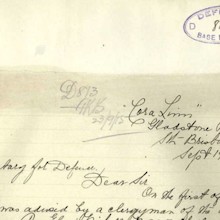 DEPE
BASE R
D873
AKB
23/9/15
"Cora Linn"
Gladstone R
Sth Brisba
Sept 19
tary for Defence,
Dear Sir
On the first of
was advised by a clergyman of the